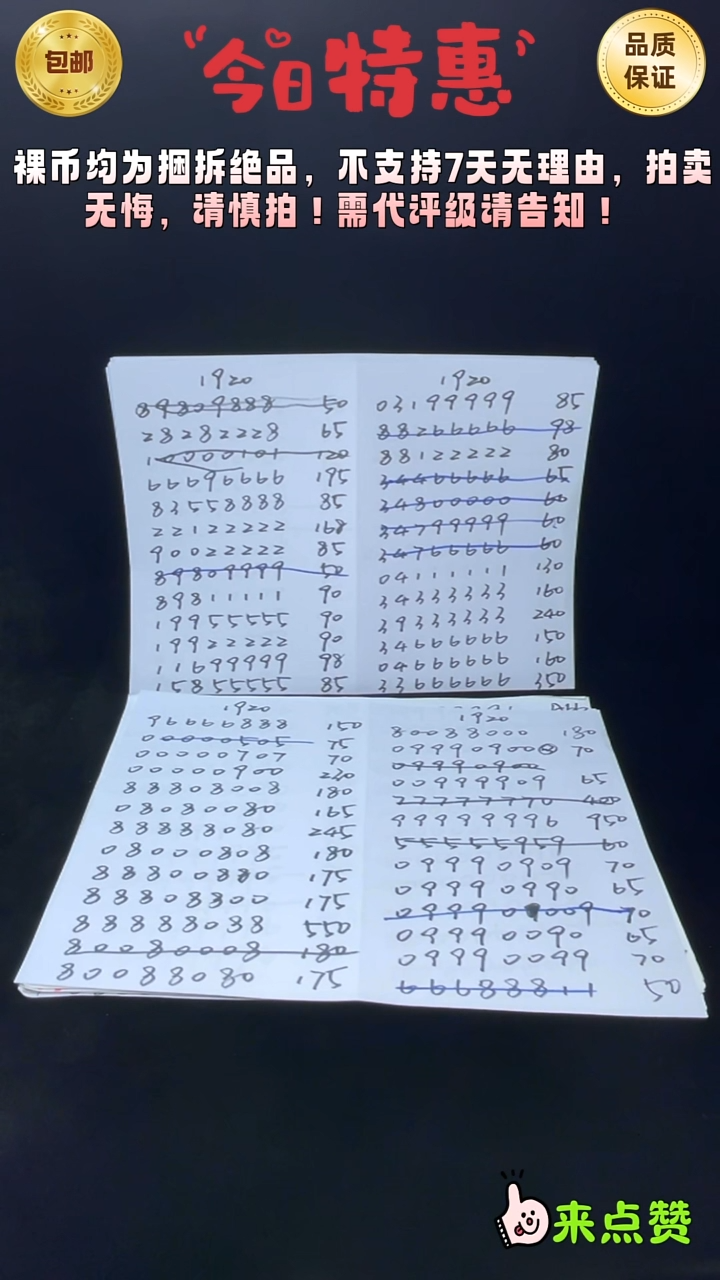 包邮
今日特惠
品质
保证
裸币均为捆拆绝品，不支持7天无理由，拍卖
无悔，请慎拍！需代评级请告知！
1920
89809888 50
28282228 65
10000101 120
66696666 195
83558888 85
22122222 168
90022222 85
89809999 50
89811111 90
19955555 90
19922222 90
11699999 98
15855555 85
1920
03199999 85
88266666 98
88122222 80
34466666 65
34800000 60
34799999 60
34766666 60
04111111 130
34333333 160
39333333 240
34666666 150
04666666 160
33666666 350
1920
96666888 150
00000505 75
00000707 70
00000900 230
88808008 180
08080080 165
88888080 245
08000808 180
88800880 175
88808800 175
88888038 550
80080008 180
80088080 175
1920
80088000 180
09990900 70
09990900
00999909 65
77777770 400
99999996 950
55555959 60
09990909 70
09990990 65
70
09990090 65
09990099 70
66688811 50
来点赞